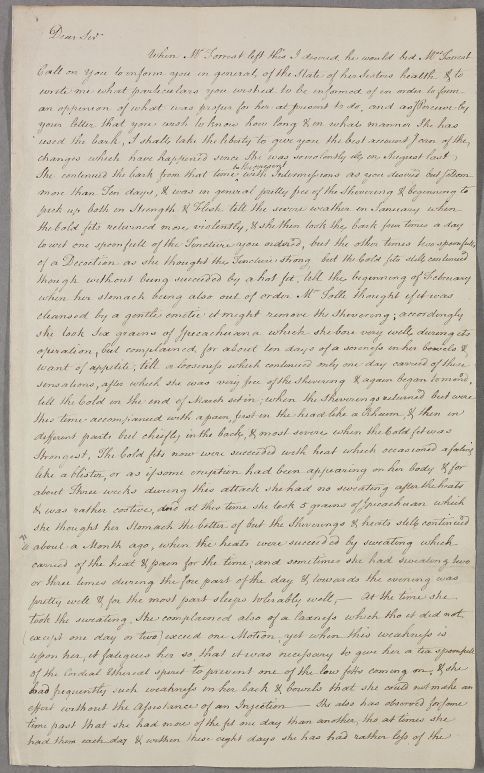 Dear Sir
When Mr Forrest left this I desired he would bid Mrs Forrest
Call on you to inform you in general of the State of her Sisters health & to
write me what particulars you wished to be informed of in order to form
an oppenion of what was proper for her at present to do, and as I perceive by
your letter that you wish to know how long & in what manner She has
used the bark, I shall take the liberty to give you the best account I can of the
changes which have happened since She was so violently ill in August last;
to the present
She continued the bark from that time with Intermissions as you desired but seldom
more than Ten days, & was in general pretty free of the Shivering & beginning to
pick up both in Strength & Flesh till the severe weather in January when
the Cold fits returned more violently, & she then took the bark four times a day
to wit one spoonfull of the Tincture you ordered, but the other times two spoonfulls
of a Decoction as she thought the Tincture strong but the Cold fits still continued
though without being succeeded by a hot fit, till the beginning of February
when her stomach being also out of order Mr thought if it was
cleansed by a gentle emetic it might remove the Shivering; accordingly
she took Six grains of Ipecachuana which she bore very well during its
operation, but complained for about ten days of a soreness in her bowels &
want of appetite, till a looseness which continued only one day carried off these
sensations, after which she was very free of the shivering & again began to mend,
till the Cold in the end of March set in; when the Shiverings returned but were
this time accompanied with a pain, first in the head like a Rheum, & then in
different parts but chiefly in the back, & most severe when the Cold fit was
Strongest, The Cold fits now were succeeded with heat which occasioned a feeling
like a blister, or as if some eruption had been appearing on her body & for
about Three weeks during this attack she had no sweating after the heats
& was rather costive, and at this time she took 5 grains of Ipecachuan which
she thought her Stomach the better of but the Shiverings & heats still continued
to about a Month ago, when the heats were succeeded by sweating which
carried off the heat & pain for the time; and sometimes she had sweating two
or three times during the fore part of the day & towards the evening was
pretty well & for the most part sleeps tolerably well, — At the time she
took the sweating, She complained also of a laxness which tho it did not
(except one day or two) exceed one Motion, yet when this weakness is
upon her, it fatigues her so, that it was necessary to give her a tea spoonfull
of the Cordial Ethereal spirit to prevent one of the low fitts coming on, & she
had frequently such weakness in her back & bowels that she could not make an
effort without the assistance of an Injection — She also has observed for some
time past that she had more of the fit one day than another, tho at times she
had them each day & within these eight days she has had rather less of the